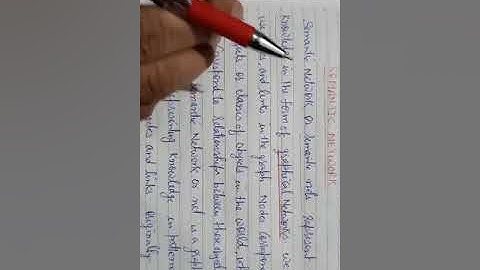 SEMANTIC NETWORK
Semantic Network or semantic nets represent
knowledge in the form of graphical Networks. we
and links in the graph Nodes
or classes of objects in the world,
Correspond to relationships between these
Semantic Network or net is a
knowledge in
and links. Originally